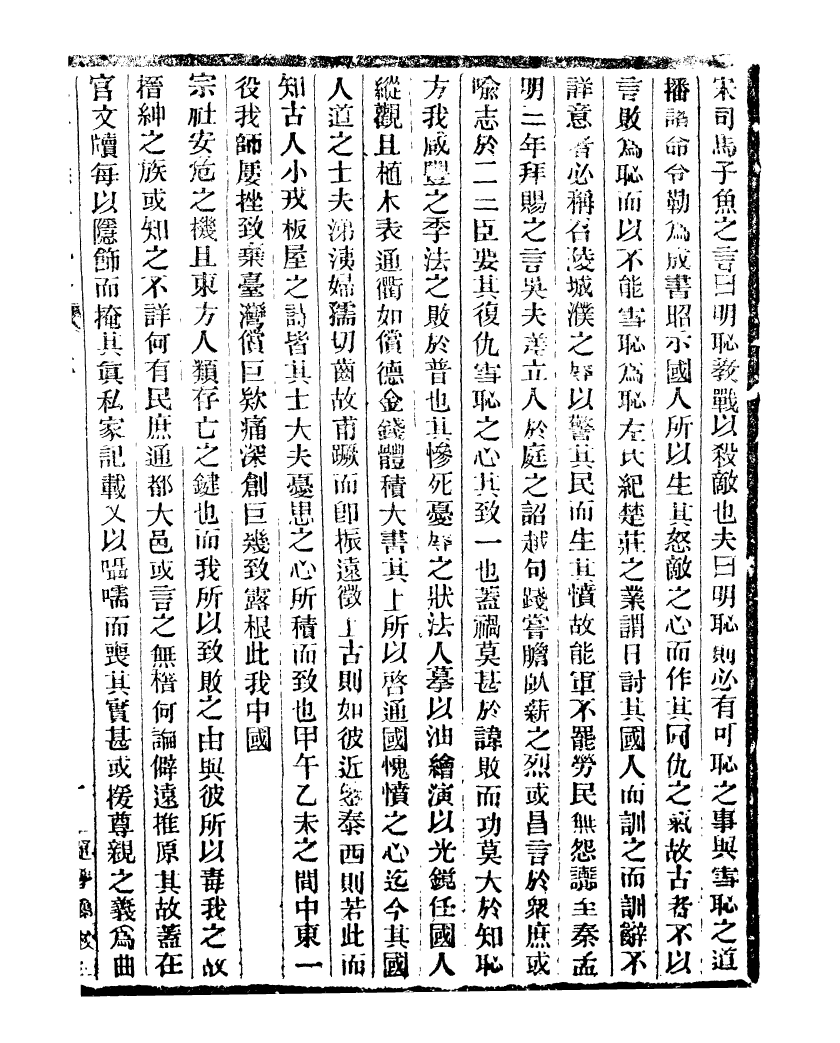 宋司馬子魚之言曰明恥敎戰以殺敵也夫曰明恥則必有可恥之事與雪恥之道
播誥命令勒為成書昭示國人所以生其怒敵之心而作其同仇之氣故古者不以
言敗為恥而以不能雪恥為恥左氏紀楚莊之業謂日討其國人而訓之而訓辭不
詳意者必稱召陵城濮之辱以警其民而生其憤故能軍不罷勞民無怨讟至秦孟
明二年拜賜之言吳夫差立人於庭之詔越句踐嘗膽臥薪之烈或昌言於衆庶或
喻志於一二臣要其復仇雪恥之心其致一也蓋禍莫甚於諱敗而功莫大於知恥
方我咸豐之季法之敗於普也其慘死憂辱之狀法人摹以油繪演以光鏡任國人
縱觀且植木表通衢如償德金錢體積大書其上所以啓通國愧憤之心迄今其國
人道之士夫涕洟婦孺切齒故甫蹶而卽振遠徵上古則如彼近鑒泰西則若此而
知古人小戎板屋之詩皆其士大夫憂思之心所積而致也甲午乙未之間中東一
役我師屢挫致棄臺灣償巨欵痛深創巨幾致露根此我中國
宗社安危之機且東方人類存亡之鍵也而我所以致敗之由與彼所以毒我之故
搢紳之族或知之不詳何有民庶通都大邑或言之無稽何論僻遠推原其故蓋在
官文牘每以隱飾而掩其眞私家記載又以囁嚅而喪其實甚或援尊親之義爲曲
一